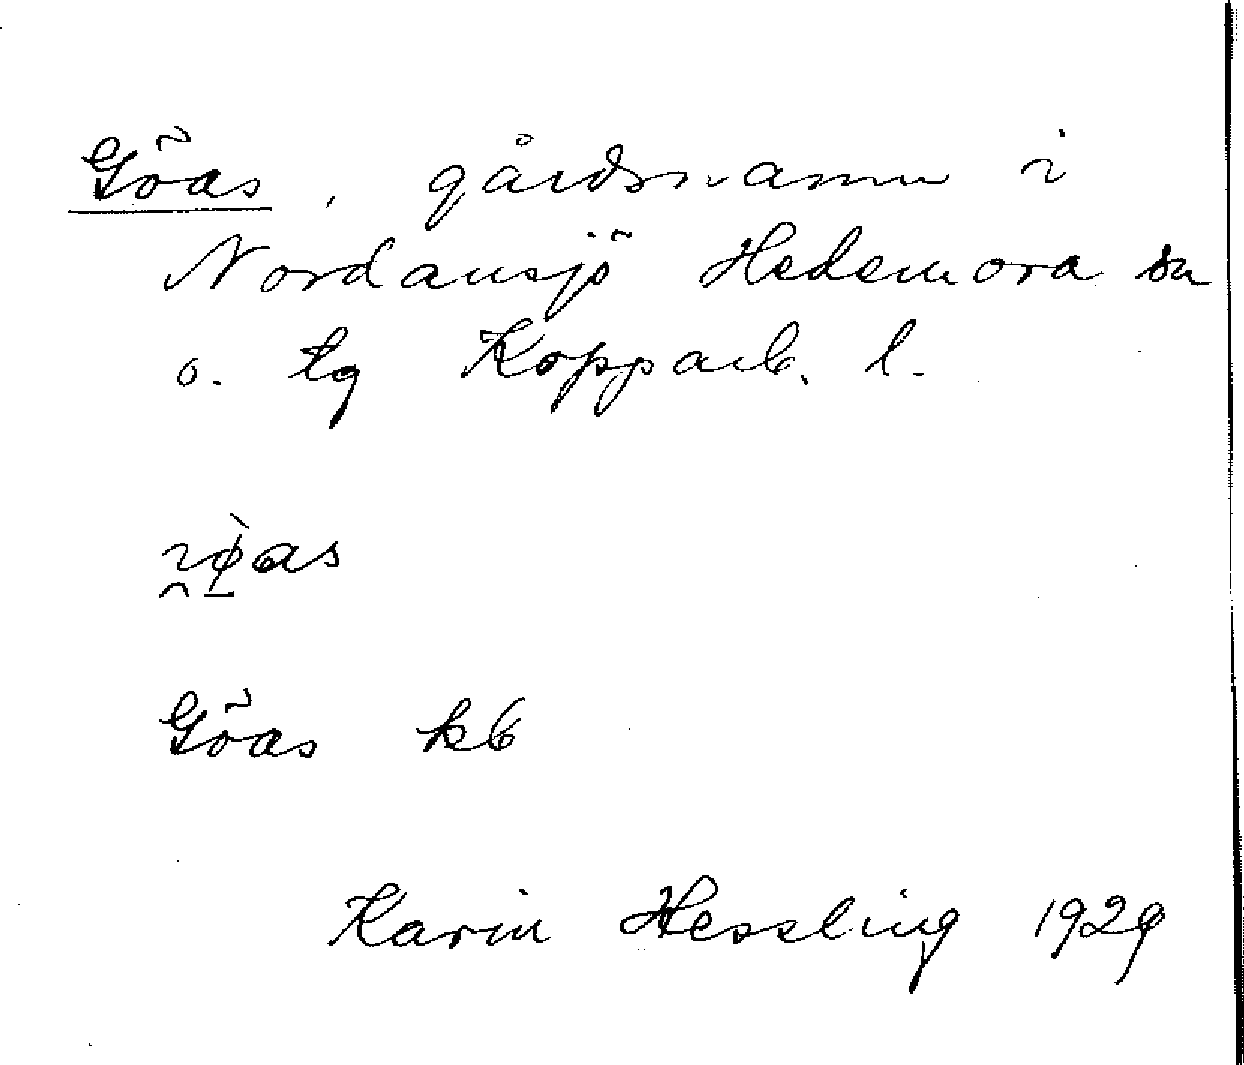 Göas, gårdsnamn i
Nordansjö Hedemora sn
o. tg Kopparb. l.
Göas kb
Karin Hessling 1929